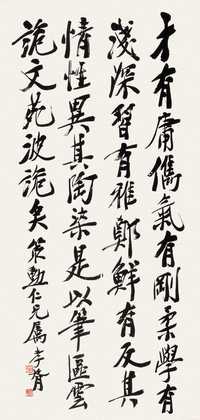 才有庸儁氣有剛柔學有
淺深習有雅鄭鮮有反其
情性異其陶染是以筆區雲
詭文苑波詭矣 策勳仁兄屬 孝胥